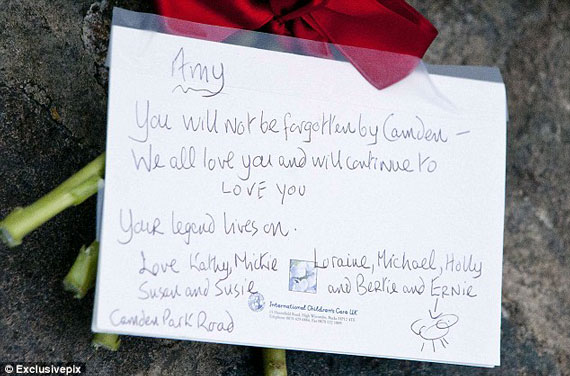 Amy
You will not be forgotten by Camden –
We all love you and will continue to
LOVE YOU
Your legend lives on.
Love Kathy, Mickie Loraine, Michael, Holly
Susan and Susie and Bertie and ERNIE
International Children's Care UK
Camden Park Road
© Exclusivepix